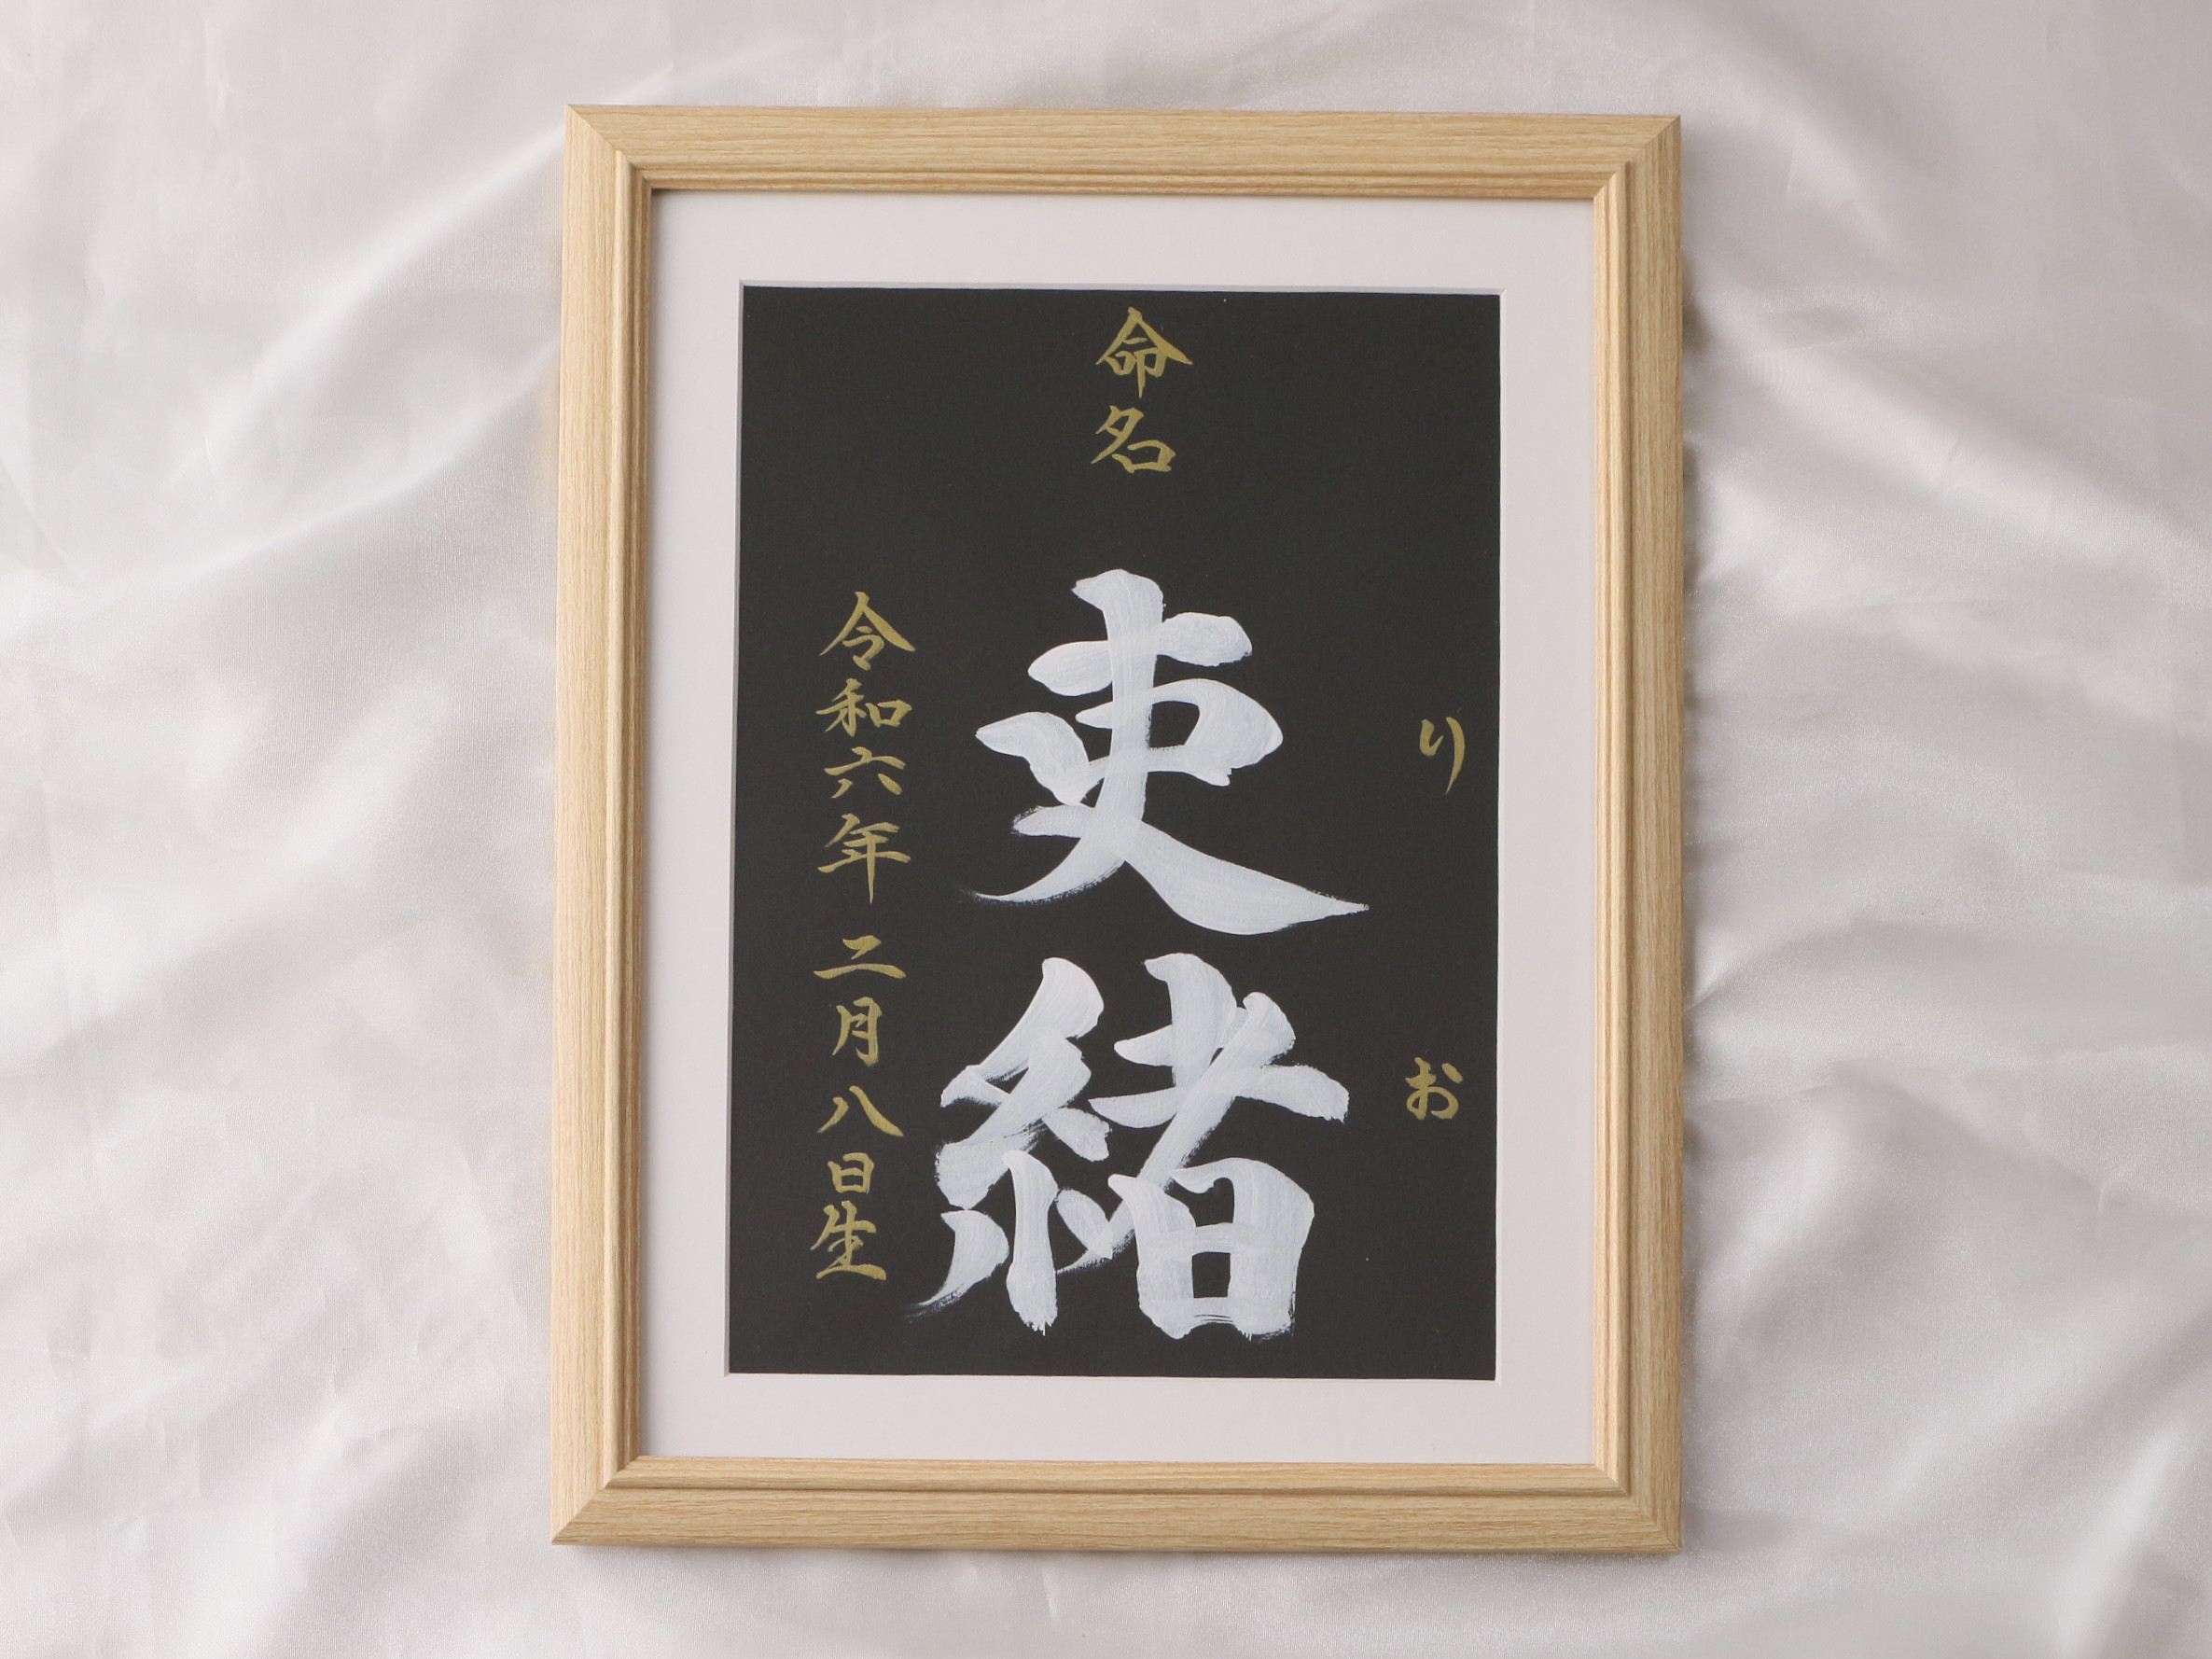 命名
りお
吏緒
令和六年 二月八日生